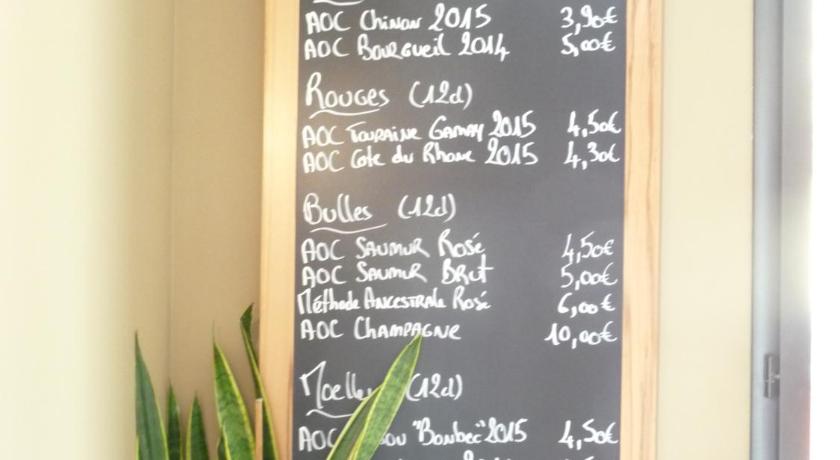 AOC Chinon 2015 3,90€
AOC Bourgueil 2014 5,00€
Rouges (12cl)
AOC Touraine Gamay 2015 4,50€
AOC Cote du Rhone 2015 4,30€
Bulles (12cl)
AOC Saumur Rosé 4,50€
AOC Saumur Brut 5,00€
Méthode Ancestrale Rosé 6,00€
AOC Champagne 10,00€
(12cl)
AOC "Bonbec" 2015 4,50€